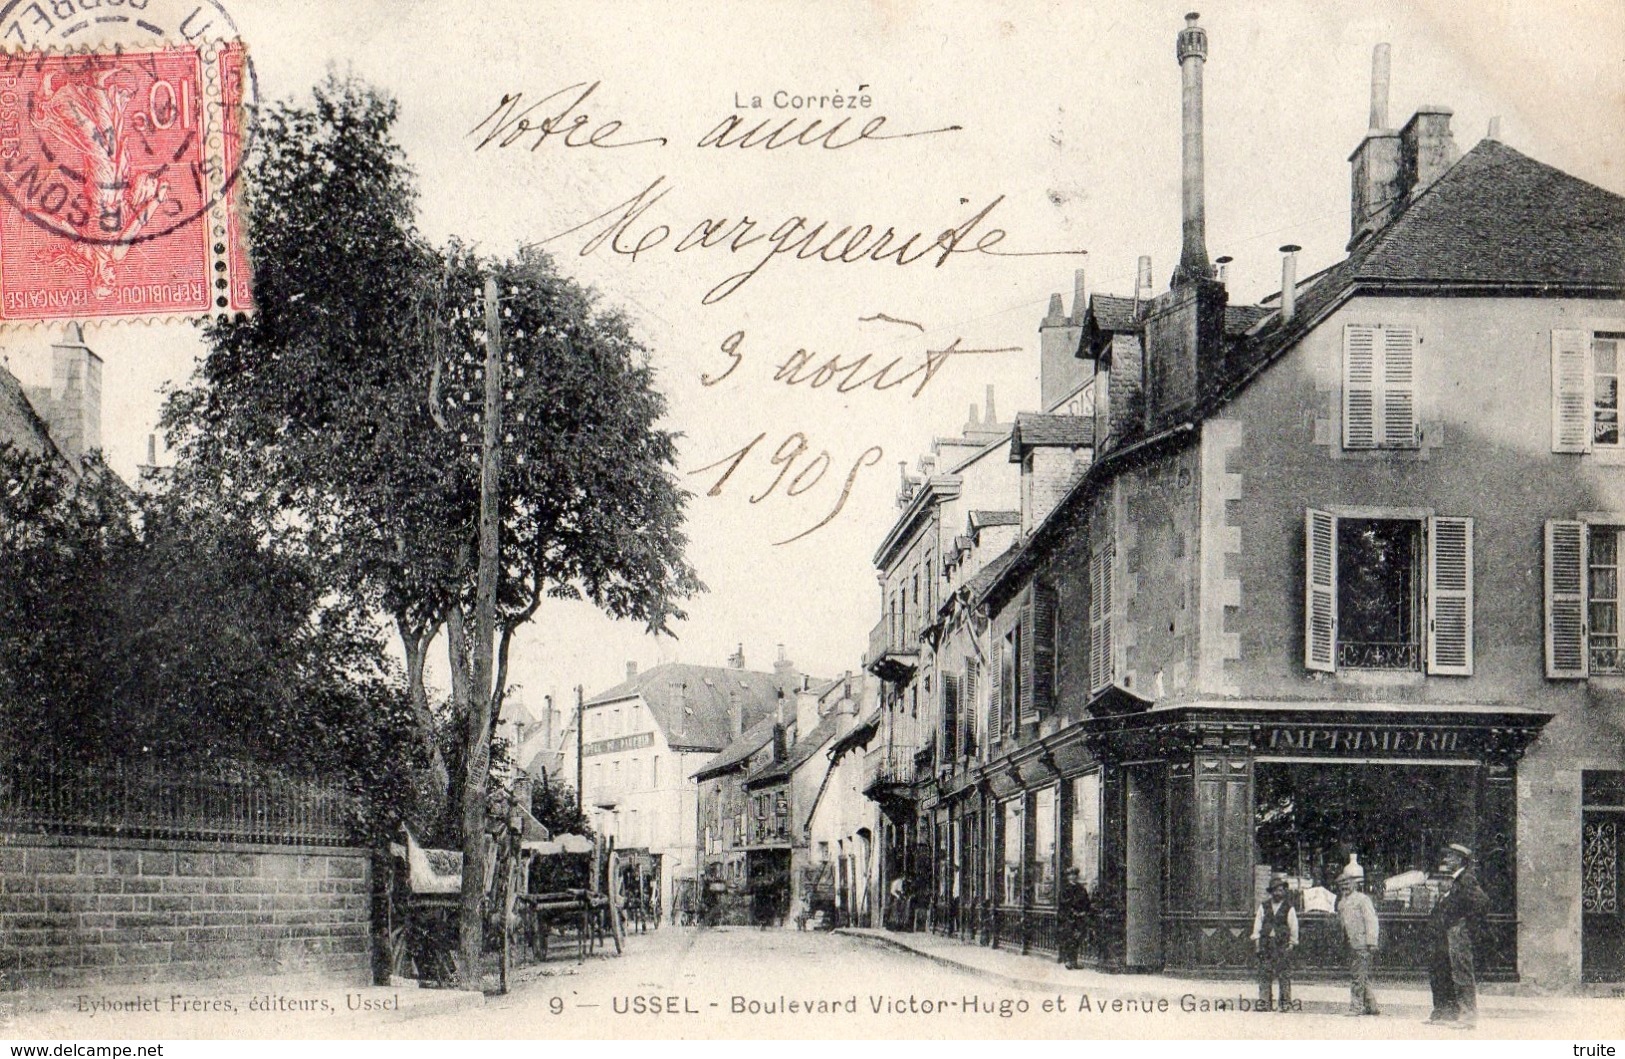 La Corrèze
Votre amie
Marguerite
3 août
1905
10c
POSTES
RÉPUBLIQUE FRANÇAISE
IMPRIMERIE
Eyboulet Frères, éditeurs, Ussel
9 — USSEL - Boulevard Victor-Hugo et Avenue Gambetta
http://www.delcampe.net
truite